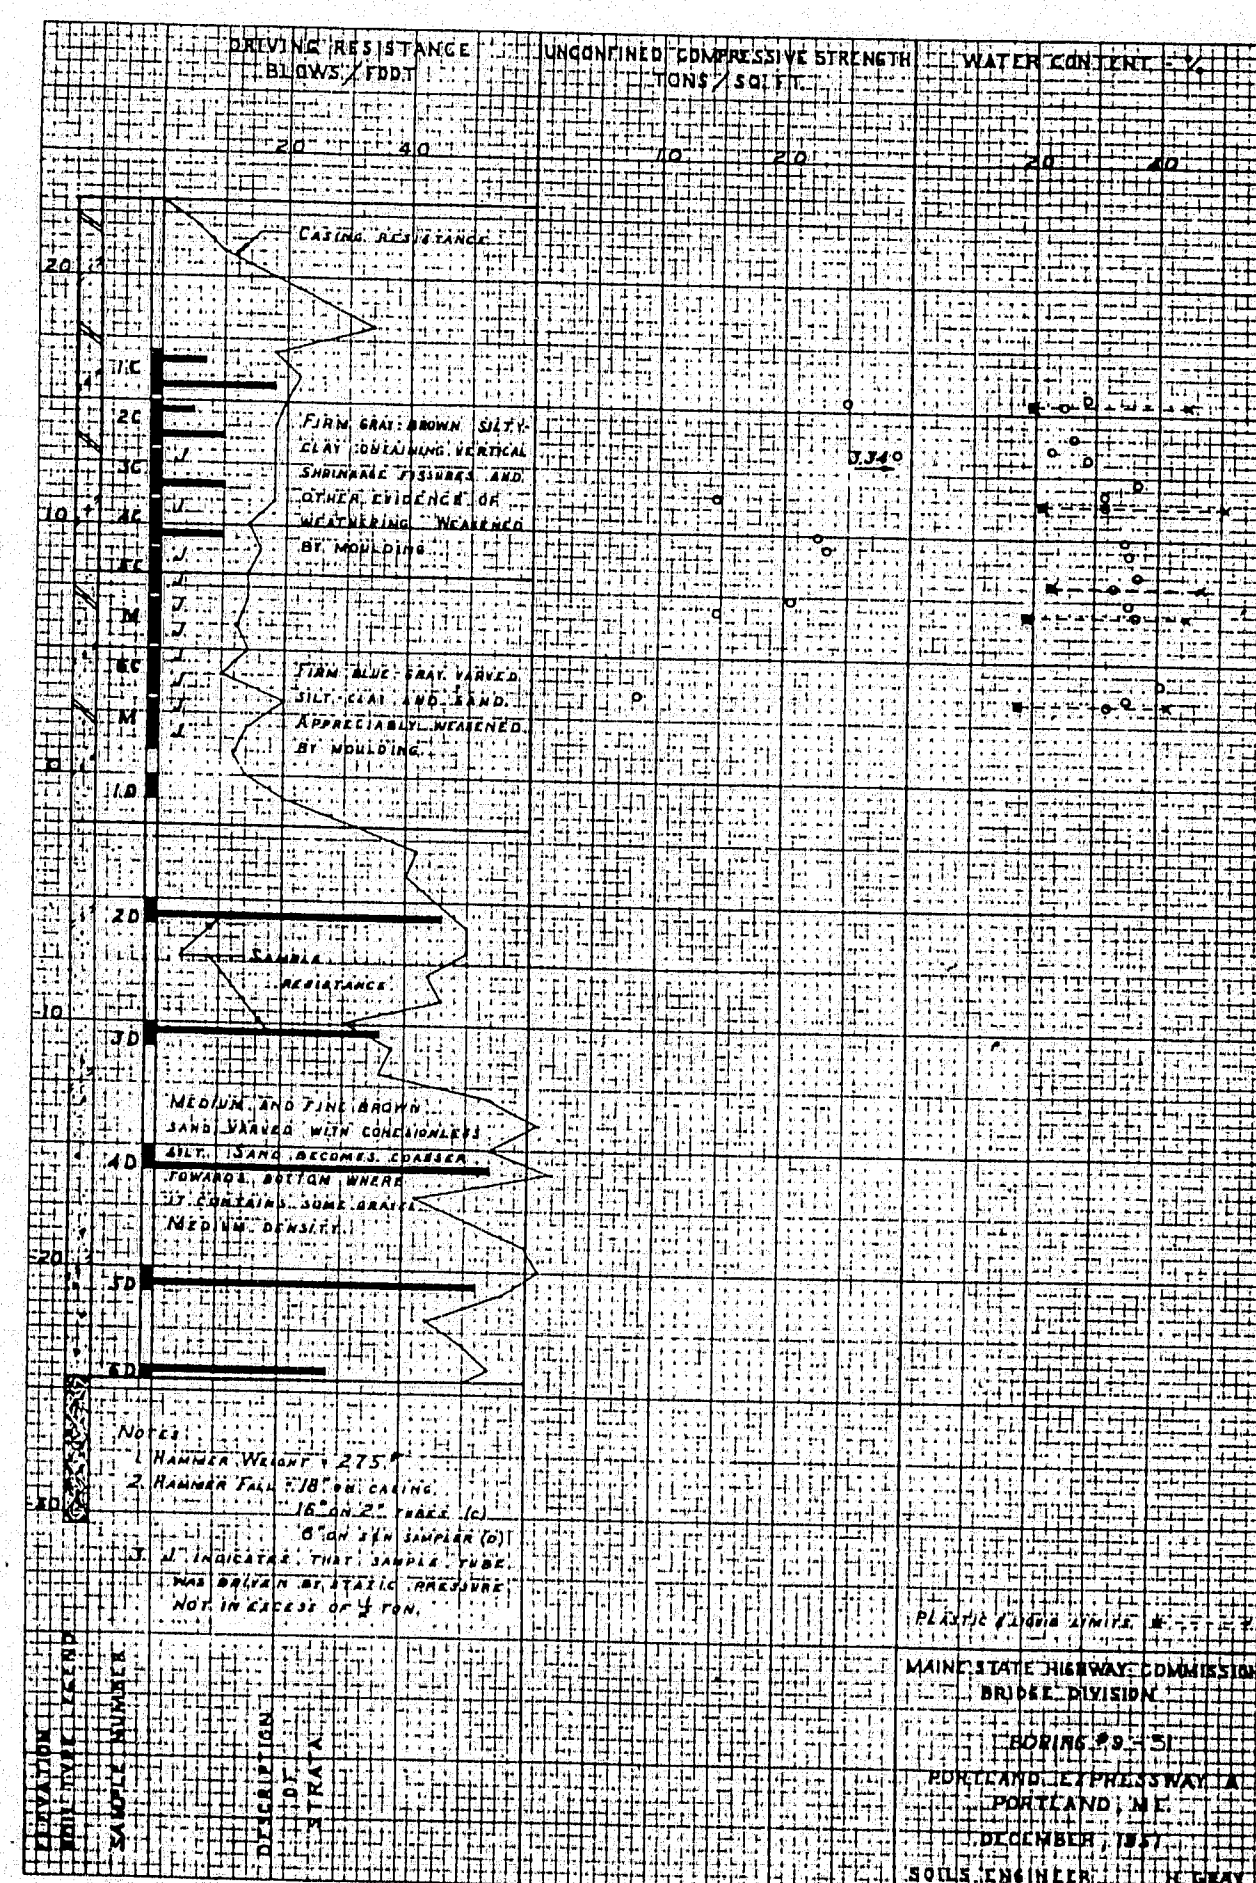 DRIVING RESISTANCE
BLOWS / FOOT
UNCONFINED COMPRESSIVE STRENGTH
TONS / SQ. FT.
WATER CONTENT - %
20
40
1.0
2.0
20
40
CASING RESISTANCE
20
1C
2C
FIRM GRAY-BROWN SILTY-
CLAY CONTAINING VERTICAL
3.34
3C
J
SHRINKAGE FISSURES AND
OTHER EVIDENCE OF
10
4C
J
WEATHERING. WEAKENED
BY MOULDING
5C
J
J
M
J
J
6C
J
FIRM BLUE-GRAY VARVED
J
SILT-CLAY AND SAND.
M
J
J
APPRECIABLY WEAKENED
BY MOULDING.
0
1D
2D
SAMPLE
RESISTANCE
-10
3D
MEDIUM AND FINE BROWN
SAND VARVED WITH COHESIONLESS
4D
SILT. SAND BECOMES COARSER
TOWARDS BOTTOM WHERE
IT CONTAINS SOME GRAVEL.
MEDIUM DENSITY.
-20
5D
6D
NOTES
1. HAMMER WEIGHT = 275#
2. HAMMER FALL = 18" ON CASING.
16" ON 2" TUBES (C)
6" ON SAMPLER (D)
-30
3. J INDICATES THAT SAMPLE TUBE
WAS DRIVEN BY STATIC PRESSURE
NOT IN EXCESS OF ½ TON.
PLASTIC & LIQUID LIMITS
ELEVATION
SOIL TYPE LEGEND
SAMPLE NUMBER
DESCRIPTION
OF
STRATA
MAINE STATE HIGHWAY COMMISSION
BRIDGE DIVISION
BORING #9-51
PORTLAND EXPRESSWAY A
PORTLAND, ME.
DECEMBER, 1951
SOILS ENGINEER H GRAY